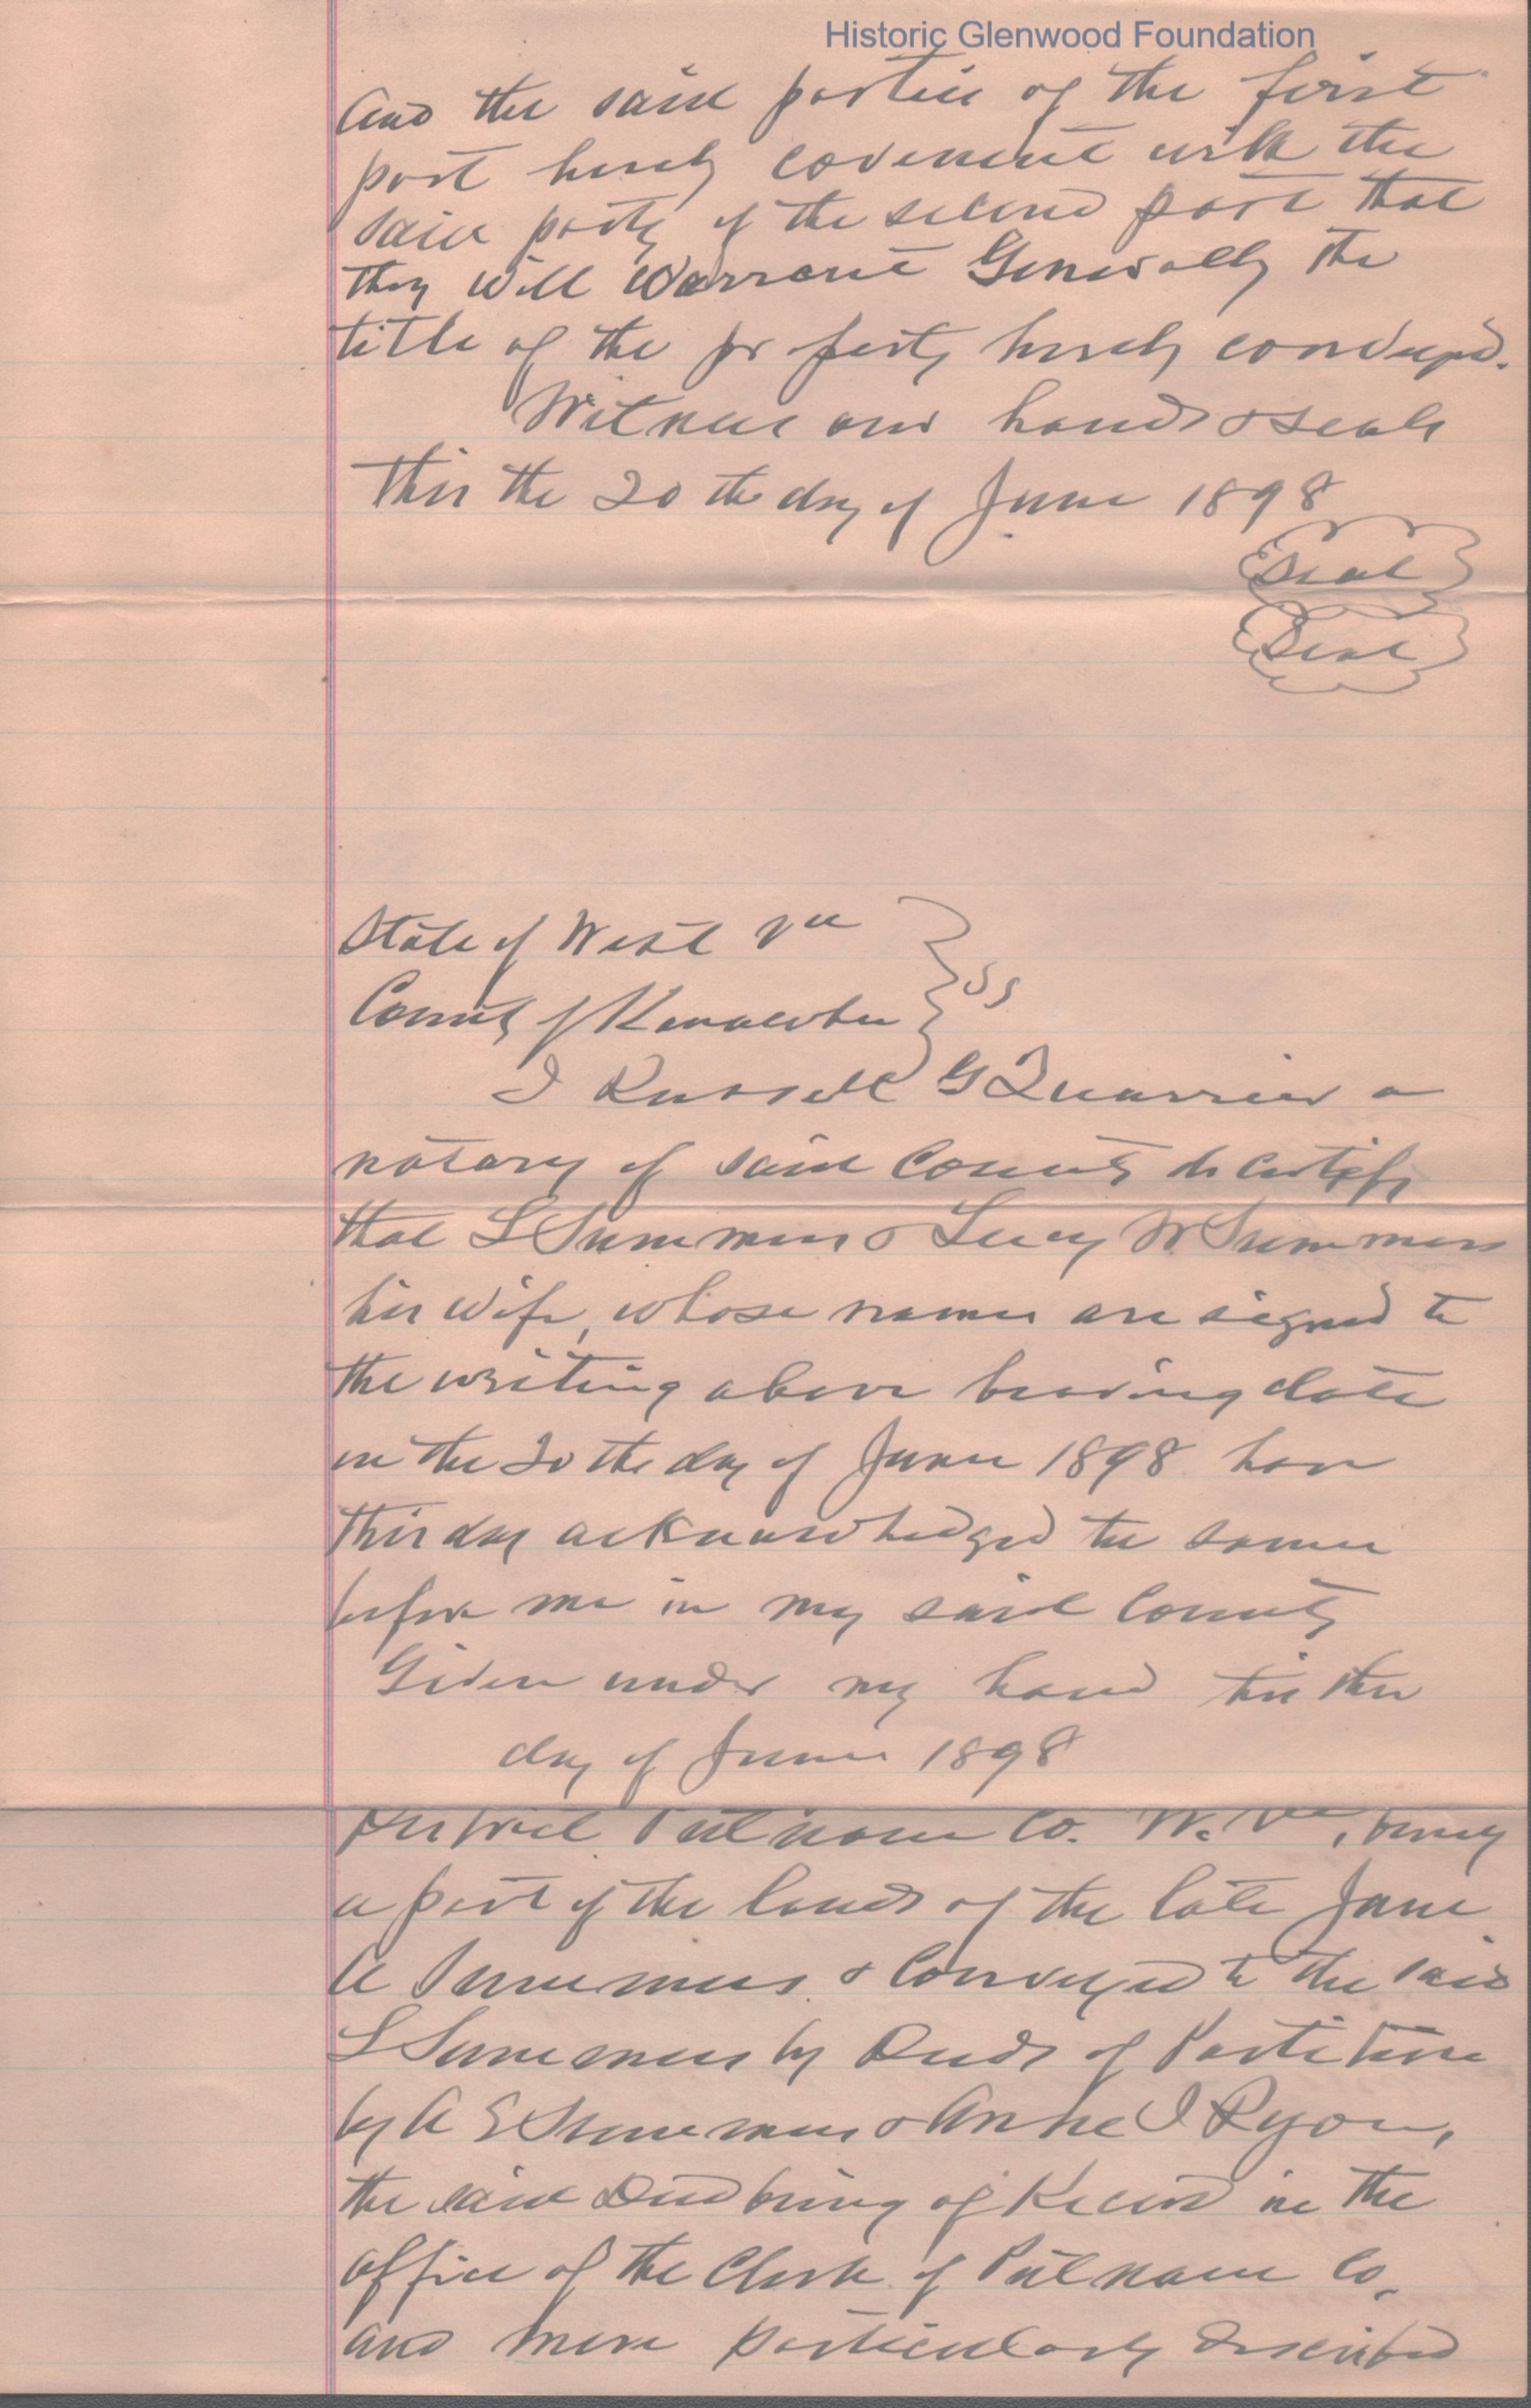 Historic Glenwood Foundation
And the said parties of the first
part hereby covenant with the
said party of the second part that
they will Warrant Generally the
title of the property hereby conveyed.
Witness our hands & seals
this the 20th day of June 1898
Seal
Seal
State of West Va
County of Kanawha } SS
I Russell G Quarrier a
notary of said County do certify
that L Summers & Lucy W Summers
his wife, whose names are signed to
the writing above bearing date
on the 20th day of June 1898 have
this day acknowledged the same
before me in my said County
Given under my hand this the
day of June 1898
District Putnam Co. W. Va, being
a part of the lands of the late Jane
A Summers & Conveyed to the said
L Summers by Deeds of Partition
by A E Summers & Anne I Ryon,
the said Deed being of Record in the
office of the Clerk of Putnam Co.
and more particularly described